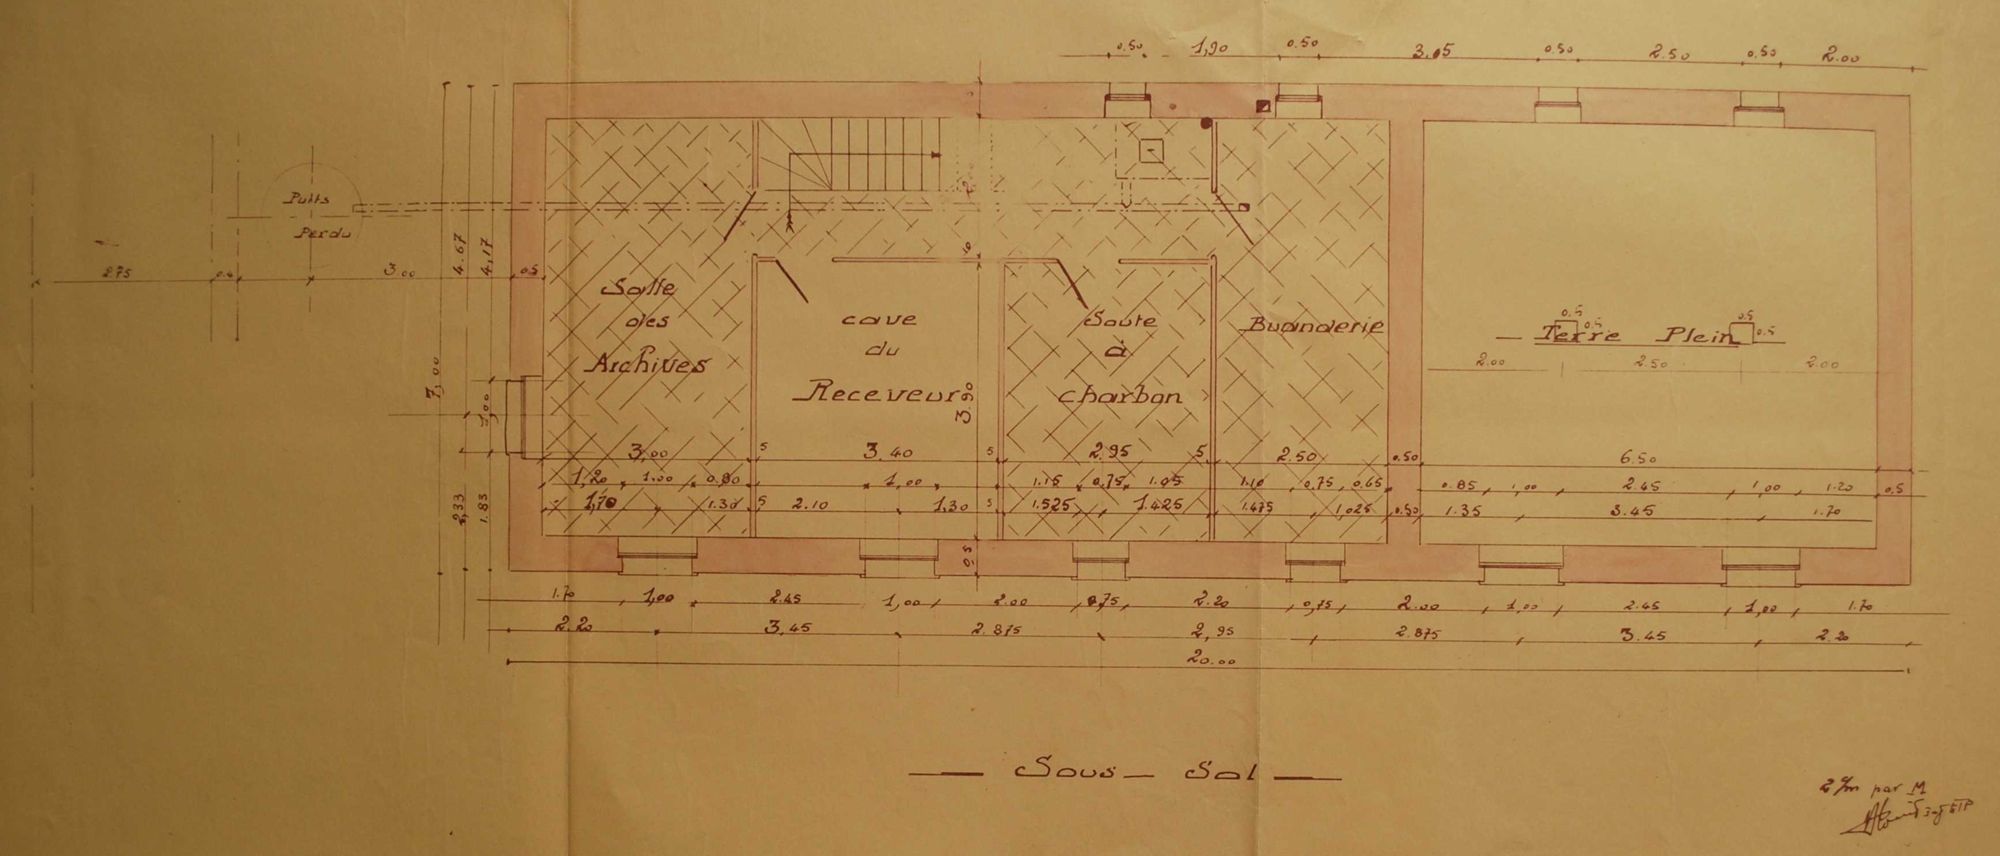 0.50 1,90 0.50 3.05 0.50 2.50 0.50 2.00
Puits
Perdu
2.75 0.4 3.00 0.5
4.67 4,17
7,00
1,00
2,33 1.83
Salle
des
Archives
cave
du
Receveur
3.90
Soute
à
charbon
Buanderie
0.5 0.5
Terre Plein
0.5 0.5
2.00 2.50 2.00
3,00 5 3.40 5 2.95 5 2.50 0.50 6.50
1,20 1.00 0.80 1,00 1.15 0.75 1.05 1.10 0.75 0.65 0.85 1,00 2.45 1,00 1.20 0.5
1,70 1.30 5 2.10 1,30 5 1.525 1.425 1.475 1,025 0.50 1.35 3.45 1.70
0.5
1.70 1,00 2.45 1,00 2.00 0,75 2.20 0,75 2.00 1,00 2.45 1,00 1.70
2.20 3,45 2.875 2,95 2.875 3.45 2.20
20.00
Sous - Sol
2 c/m par M